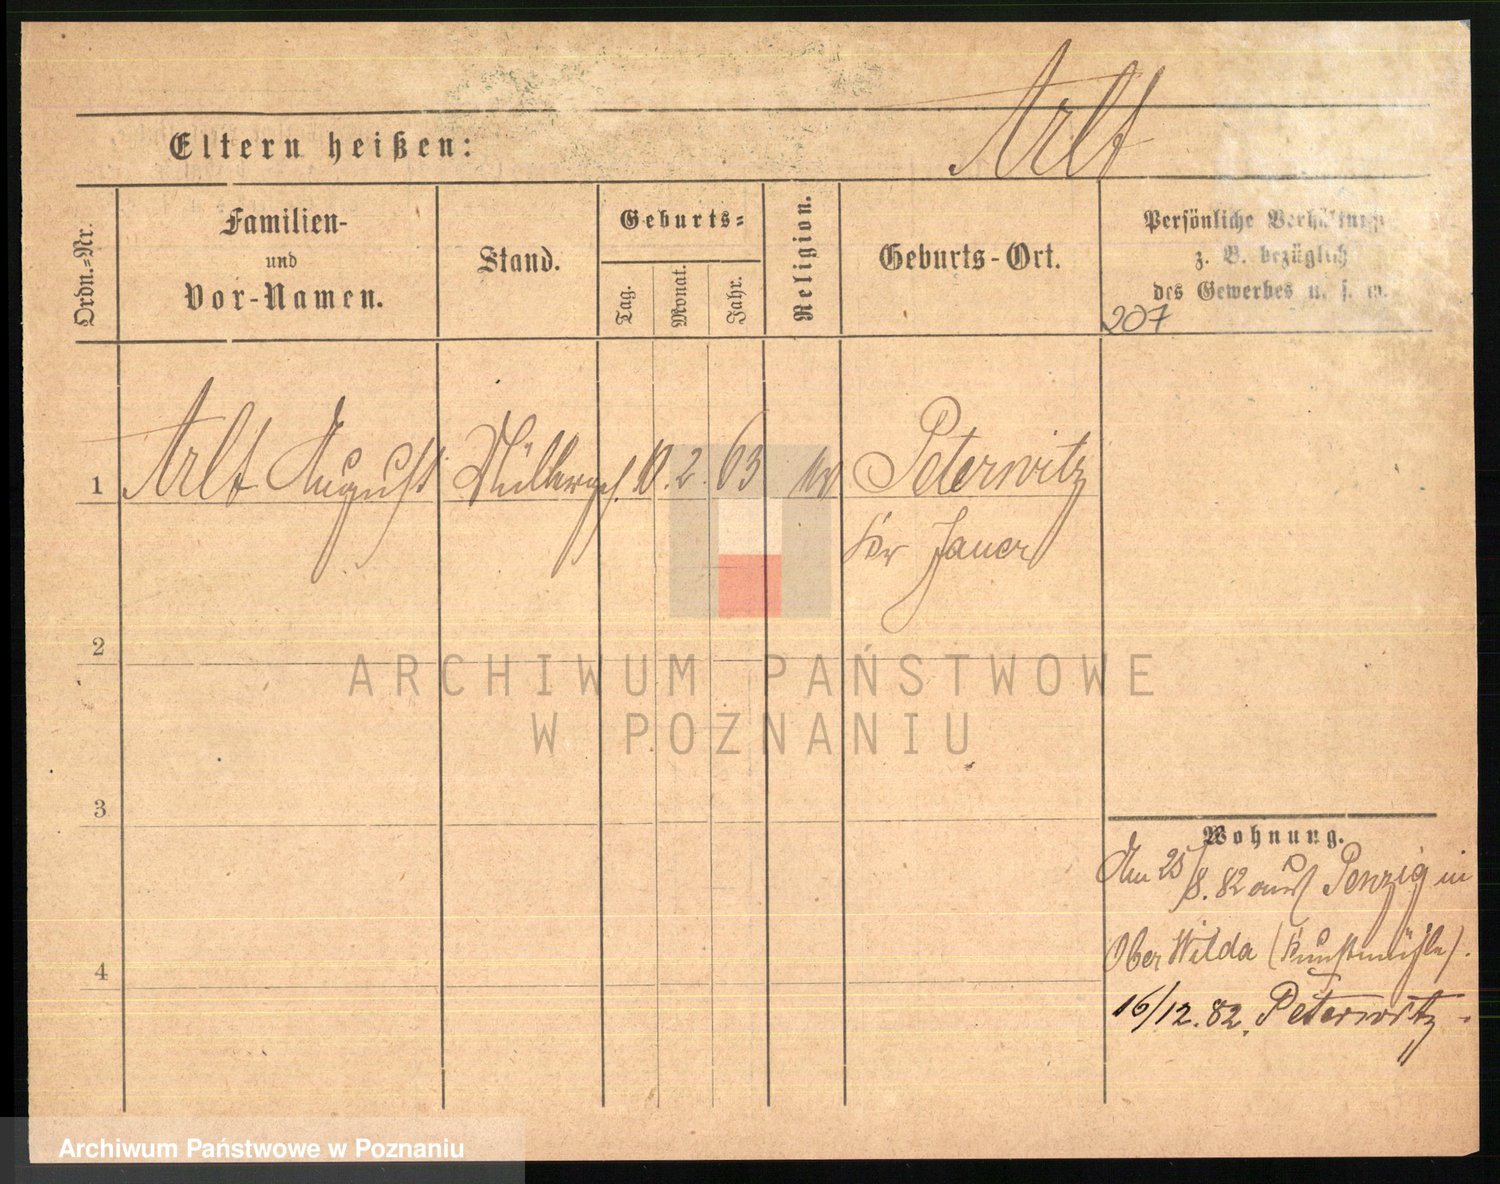 Arlt
Eltern heißen:
Ordn.-Nr.
Familien-
und
Vor-Namen.
Stand.
Geburts-
Tag.
Monat.
Jahr.
Religion.
Geburts-Ort.
Persönliche Verhältnisse
z. B. bezüglich
des Gewerbes u. s. w.
207
1 Arlt August Müllerges. 2. 63 Peterwitz
Kr Jauer
2
ARCHIWUM PAŃSTWOWE
W POZNANIU
3
Wohnung.
Am 25/8. 82 aus Penzig in
Ober Wilda (Kunstmühle).
4
16/12. 82. Peterwitz.
Archiwum Państwowe w Poznaniu